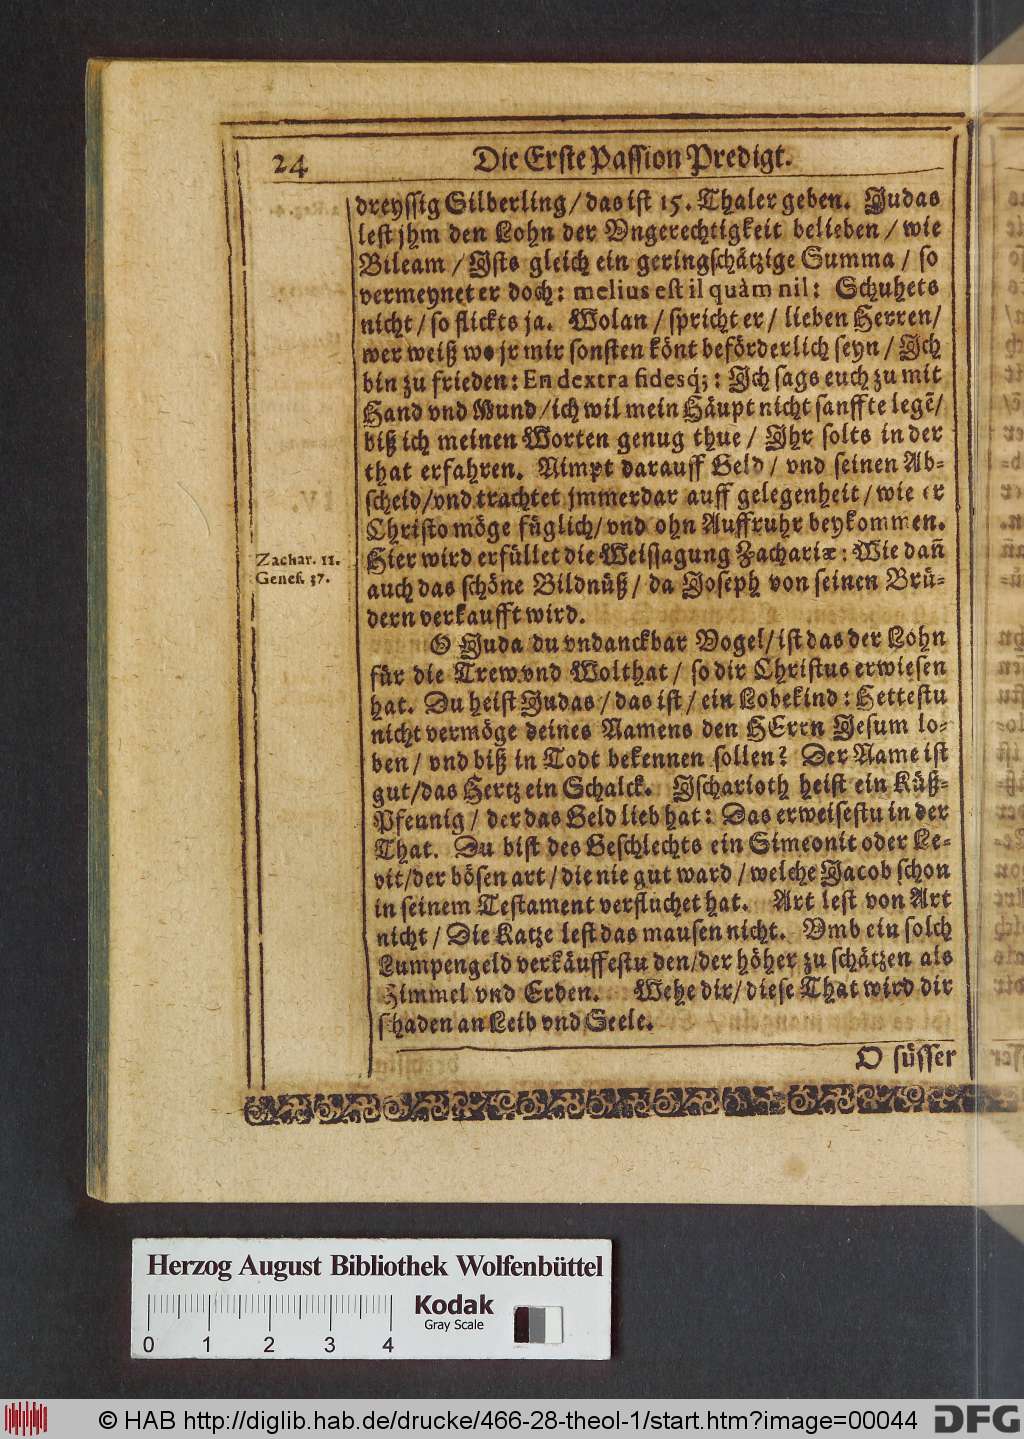 24
Die Erste Passion Predigt.
dreyssig Silberling / das ist 15. Thaler geben. Judas
lest jhm den Lohn der Vngerechtigkeit belieben / wie
Bileam / Ists gleich ein geringschätzige Summa / so
vermeynet er doch: melius est il quàm nil: Schuhets
nicht / so flickts ja. Wolan / spricht er / lieben Herren/
wer weiß wo jr mir sonsten könt beförderlich seyn / Ich
bin zu frieden: En dextra fidesq́;: Ich sags euch zu mit
Hand vnd Mund / ich wil mein Häupt nicht sanffte legẽ/
biß ich meinen Worten genug thue / Ihr solts in der
that erfahren. Nimpt darauff Geld / vnd seinen Ab-
scheid/vnd trachtet jmmerdar auff gelegenheit / wie er
Christo möge füglich/ vnd ohn Auffruhr beykommen.
Hier wird erfüllet die Weissagung Zachariæ: Wie dañ
auch das schöne Bildnüß / da Joseph von seinen Brü-
dern verkaufft wird.
Zachar. 11.
Genes. 37.
O Juda du vndanckbar Vogel/ ist das der Lohn
für die Trew vnd Wolthat / so dir Christus erwiesen
hat. Du heist Judas / das ist / ein Lobekind: Hettestu
nicht vermöge deines Namens den HErrn Jesum lo-
ben / vnd biß in Todt bekennen sollen? Der Name ist
gut/das Hertz ein Schalck. Ischarioth heist ein Küß-
Pfennig / der das Geld lieb hat: Das erweisestu in der
That. Du bist des Geschlechts ein Simeonit oder Le-
vit/der bösen art / die nie gut ward / welche Jacob schon
in seinem Testament verfluchet hat. Art lest von Art
nicht / Die Katze lest das mausen nicht. Vmb ein solch
Lumpengeld verkäuffestu den/der höher zu schätzen als
Himmel vnd Erden. Wehe dir/ diese That wird dir
schaden an Leib vnd Seele.
O süsser
Herzog August Bibliothek Wolfenbüttel
Kodak
Gray Scale
0 1 2 3 4
© HAB http://diglib.hab.de/drucke/466-28-theol-1/start.htm?image=00044
DFG